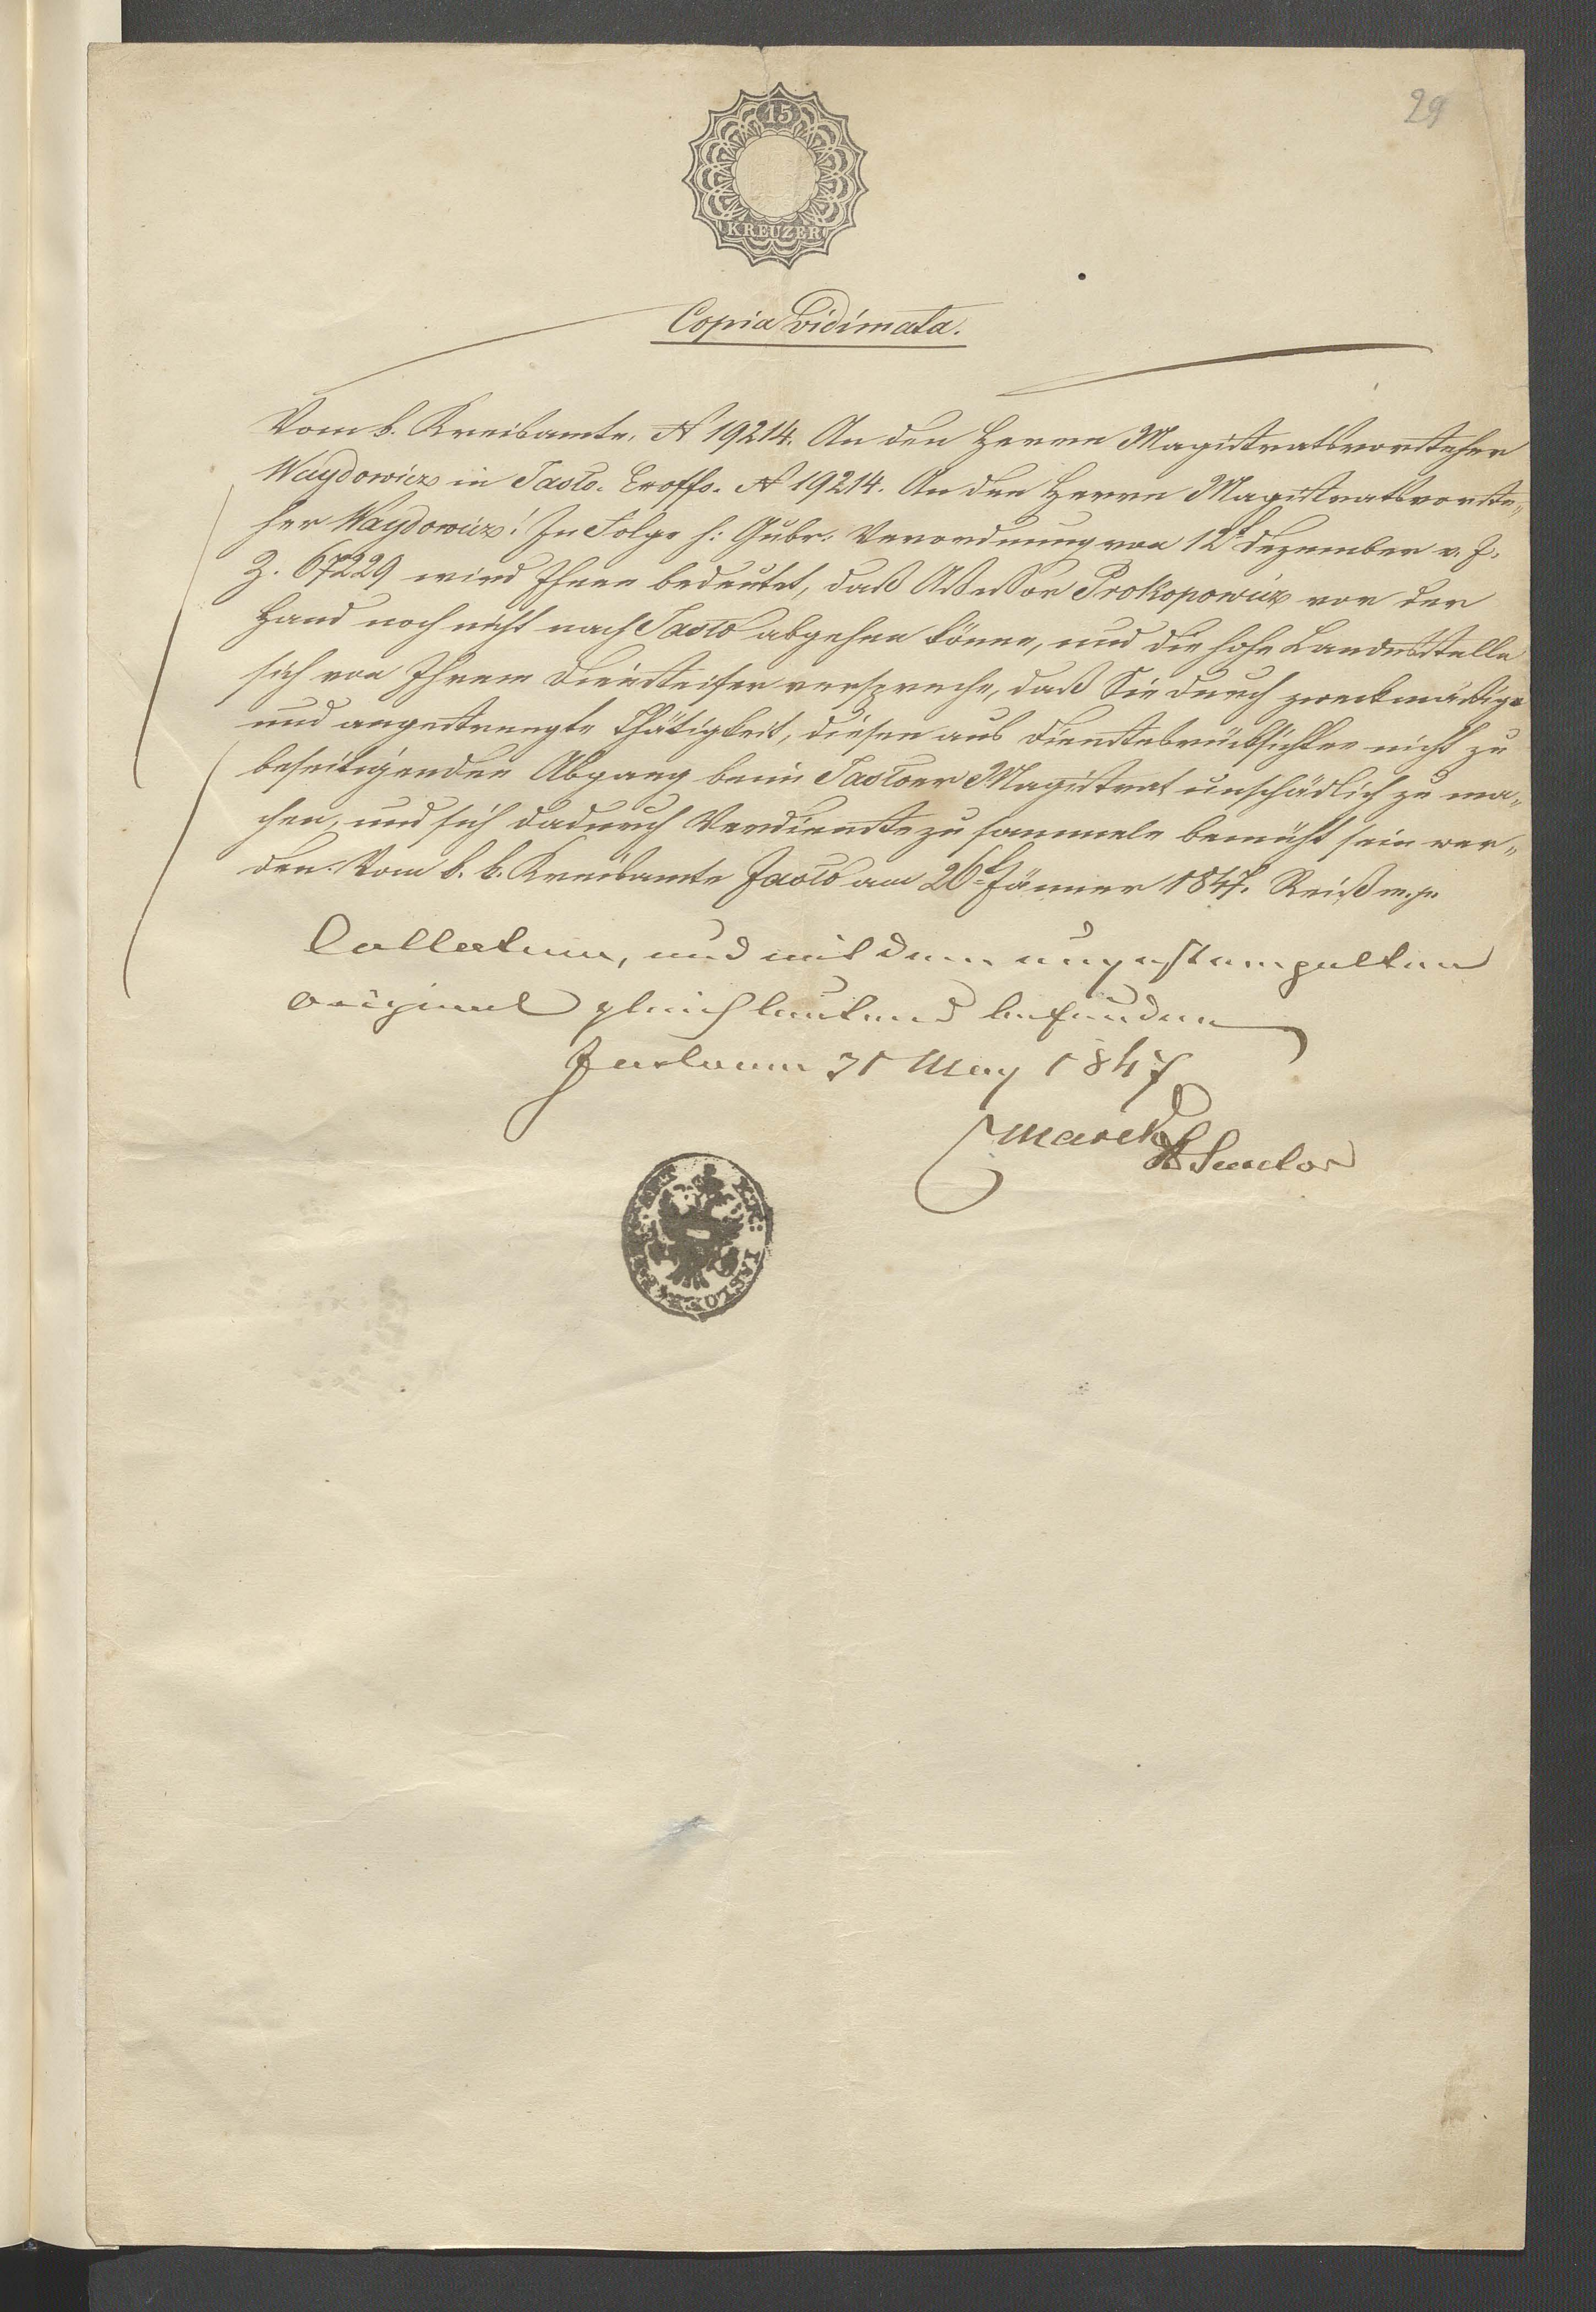 29
15
KREUZER
Copia vidimata.
Vom k. Kreisamte. N 19214. An den Herrn Magistratsvorsteher
Waydowicz in Jasło. Exoffo. N 19214. An den Herrn Magistratsvorste„
her Waydowicz! In Folge h: Gubr: Verordnung von 12t Dezember v. J.
Z. 67229 wird Ihnen bedeutet, daß Assessor Prokopowicz vor der
Hand noch nicht nach Jasło abgehen könne, und die hohe Landesstelle
sich von Ihrem Diensteifer verspreche, daß Sie durch zweckmäßige
und angestrengte Thätigkeit, diesen aus Dienstesrücksichten nicht zu
beseitigenden Abgang beim Jasłoer Magistrat unschädlich zu ma„
chen, und sich dadurch Verdienste zu sammeln bemüht sein wer„
den. Vom k. k. Kreisamte Jasło am 26t Jänner 1847. Reiß m. p.
Collatum, und mit dem ungestempelten
Original gleichlautend befunden
Jaslo am 31 May 1847
Marek